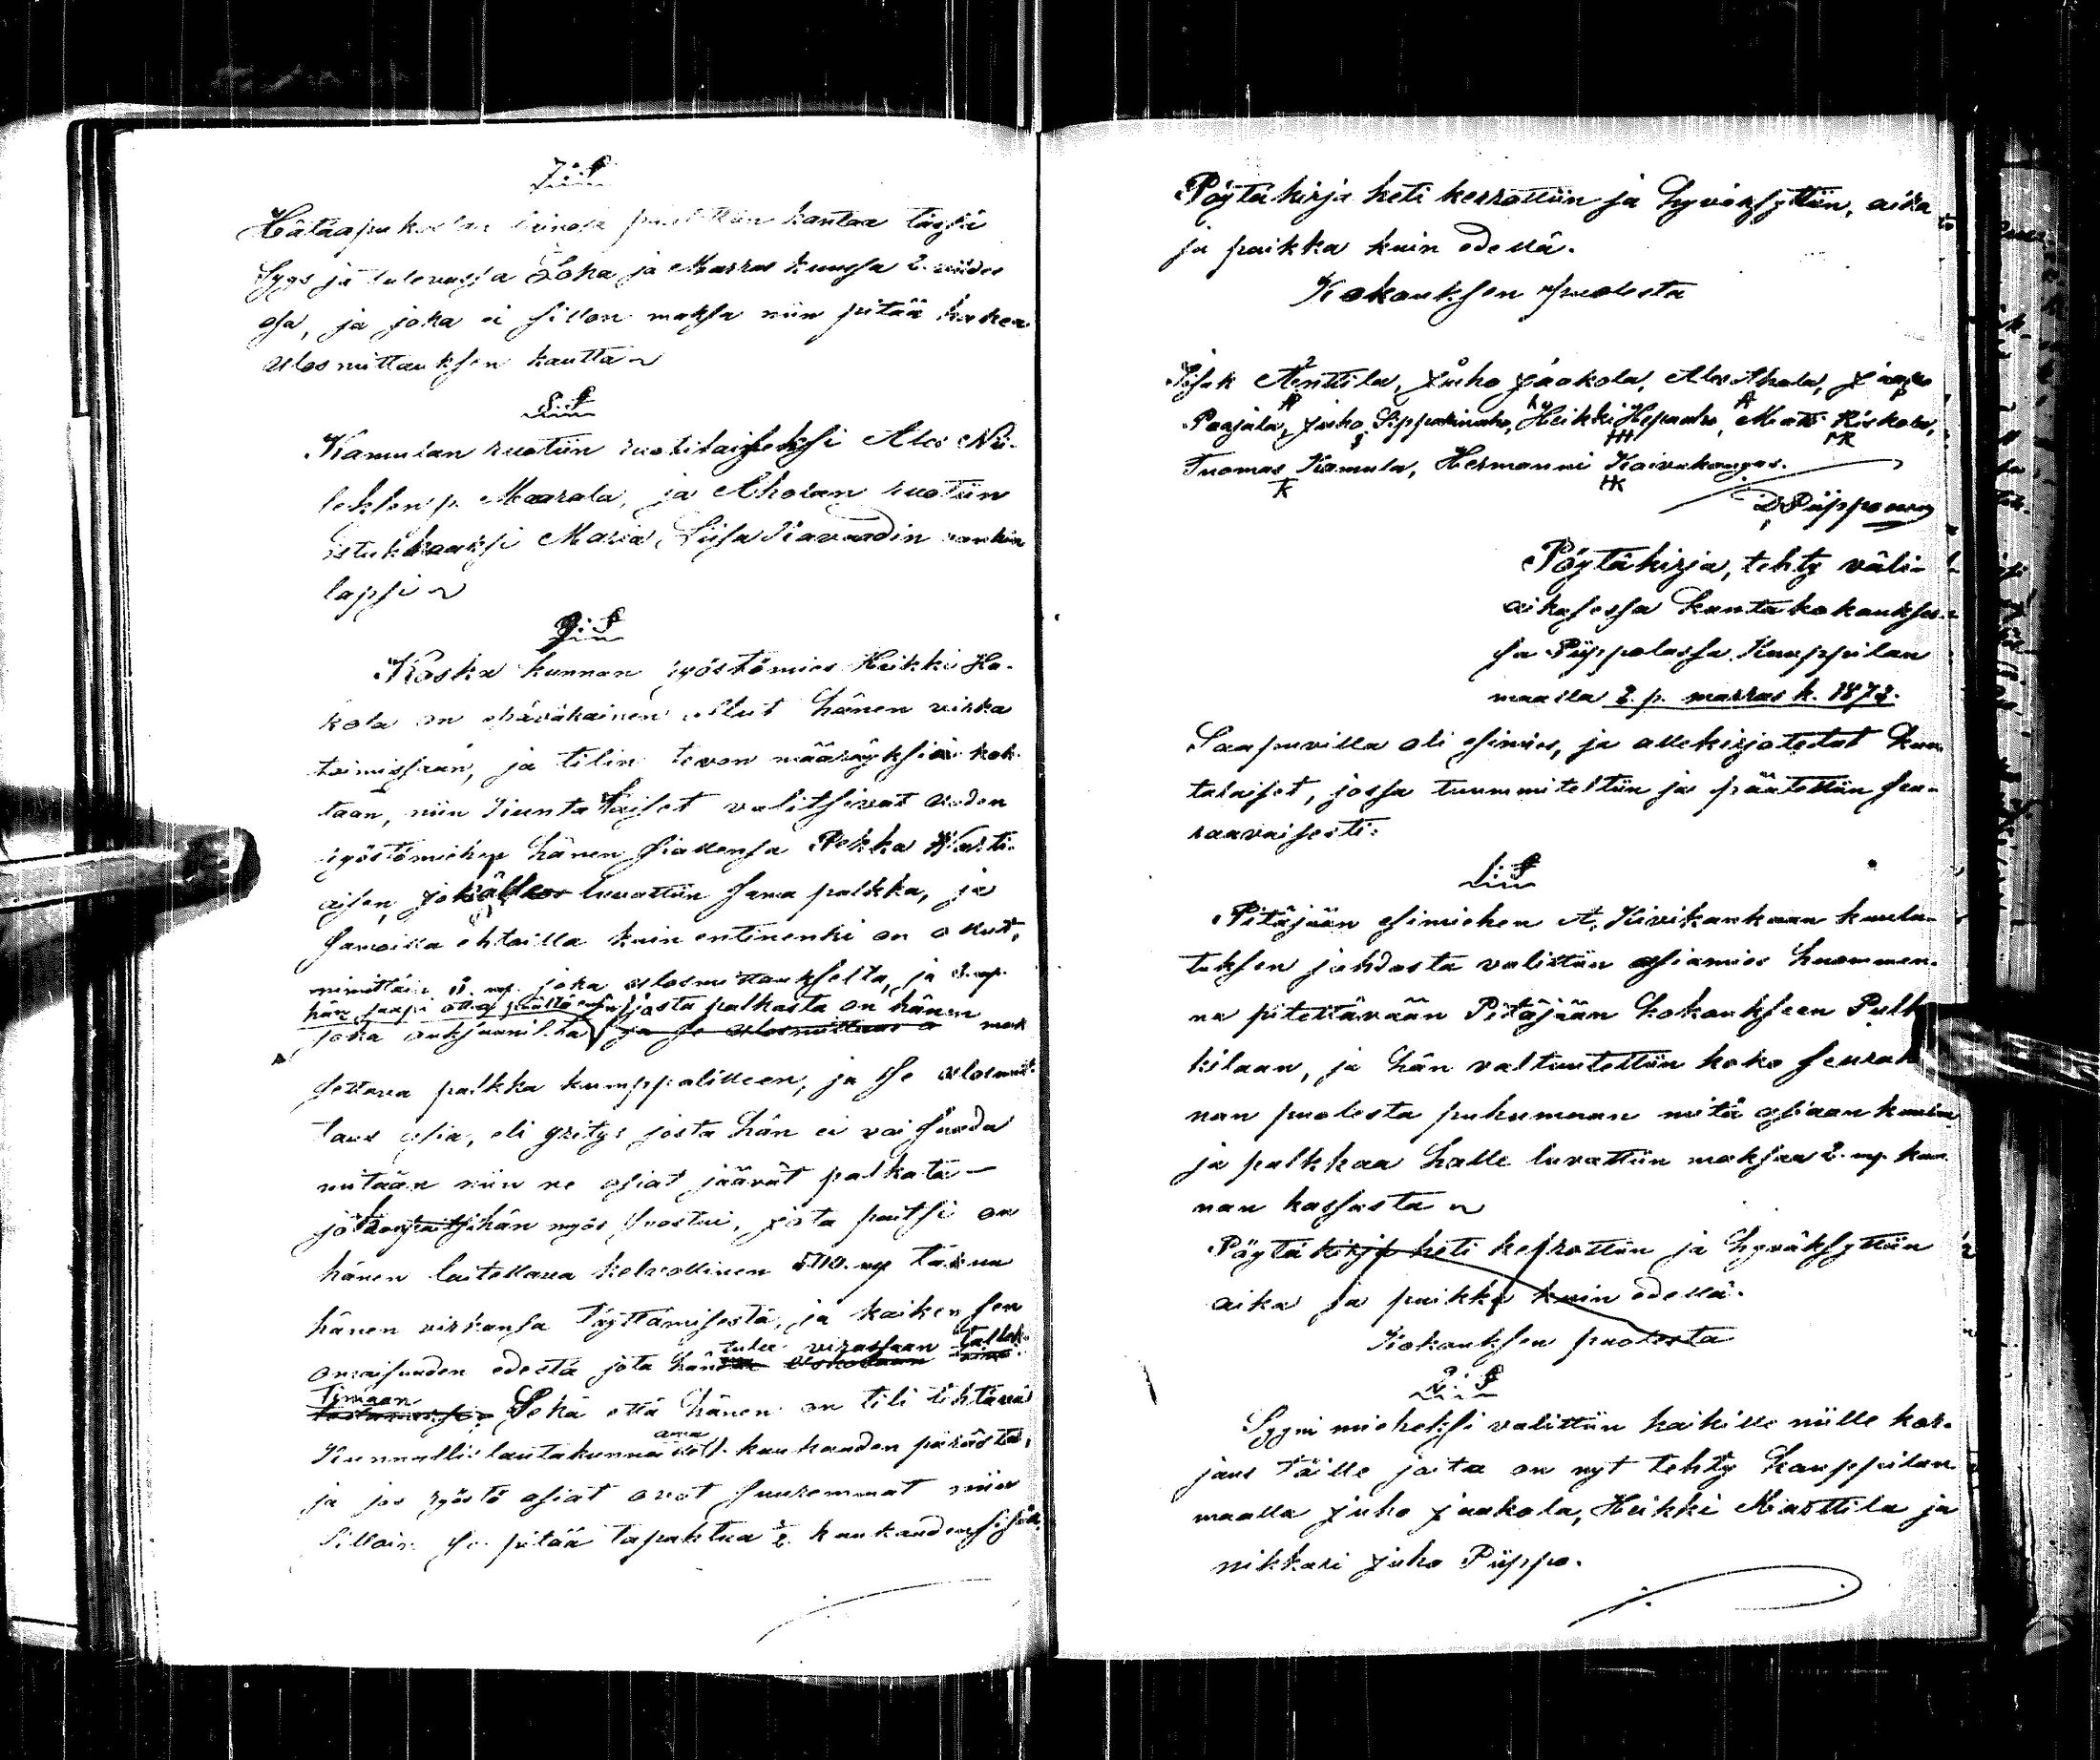 7:§
Hätäapu lainaja päätettiin kantaa tägsä
Sygs ja tulevassa Loka ja Marras kuussa 2. viides
osa, ja joka ei sillon maksa niin pitää hakea
ulosmittauksen kautta
8:§
Kamulan ruotiin ruotilaiseksi Alex
p. Maarala, ja Aholan ruotiin
istukkaaksi Maria Liisa vanhin
lapsi
9:§
Koska kunnan ryöstömies Heikki Ha-
kola on epäväkainen ollut hänen virka
toimissaan, ja tilin tevon määräyksiä koh-
taan, niin kunta laiset valitsivat uuden
ryöstömiehen hänen siallensa Pekka
aisen, jolle luvattiin sama palkka, ja
samoilla ehtoilla kuin entinenki on ollut,
nimittäin joka ulosmittaukselta, ja 3. mp.
hän saapi ottaa josta palkasta on hänen
joka auksuunilta ja se ulosmittaus mak
settava palkka kumppalilleen, ja se ulosmit-
taus asia, eli yritys josta hän ei voi saada
mitään niin ne asiat jäävät palkata-
hän myös suostui, jota paitsi on
hänen laitettava kelvollinen 500. mp takuu
hänen virkansa täyttämisestä, ja kaiken sen
tulee virassaan tallet-
omaisuuden edestä jota hän
timaan
Sekä että hänen on tili tehtävä
Kunnallis lautakunnalle 1. kuukauden perästä,
ja jos ryöstö asiat ovat suuremmat niin
silloin se pitää tapahtua 2. kuukauden sisällä.
Pöytäkirja heti kerrottiin ja hyväksyttiin, aika
ja paikka kuin edellä.
Kokouksen puolesta
Iisak Anttila, Juho Jaakola, Alex Ahola, Jaakko
Paajala, Juho Sipparinaho, Heikki Hepoaho, Matti Kiskola,
Tuomas Kamula, Hermanni Kaivukangas.
TK HK
D. Piipponen
Pöytäkirja, tehty väli-
aikasessa kuntakokoukses-
sa Piippolassa Kauppilan
maalla 2. p. marras k. 1873.
Saapuvilla oli esimies, ja allekirjotetut kun
talaiset, jossa tuummiteltiin ja päätettiin seu-
raavaisesti:
1:§
Pitäjään esimiehen A. Kivikankaan kuulu-
tuksen johdosta valittiin asiamies huommen-
na pitettävään Pitäjään kokoukseen Pulk
kilaan, ja hän valtuutettiin koko seurak
nan puolesta puhumaan mitä asiaan kuuluu
ja palkkaa halle luvattiin maksaa 2. mp. kun
nan kassasta
Pöytäkirja heti kerrottiin ja hyväksyttiin
aika ja paikka kuin edellä.
Kokouksen puolesta
2:§
Syyni mieheksi valittiin kaikille niille kor-
jaus töille joita on nyt tehty Kauppilan
maalla Juho Jaakola, Heikki Marttila ja
nikkari Juho Piippo.